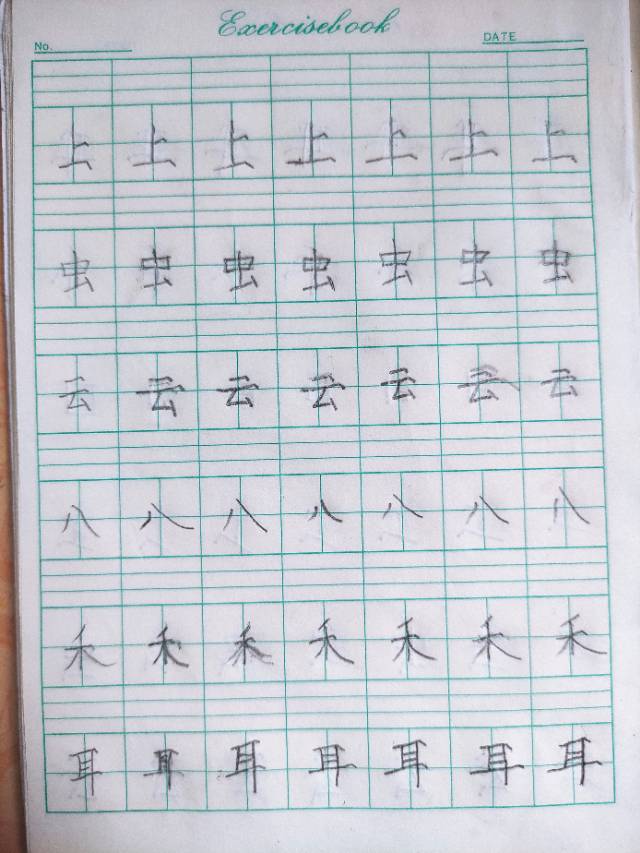 Exercisebook
No. DATE
上 上 上 上 上 上 上
虫 虫 虫 虫 虫 虫 虫
云 云 云 云 云 云 云
八 八 八 八 八 八 八
禾 禾 禾 禾 禾 禾 禾
耳 耳 耳 耳 耳 耳 耳